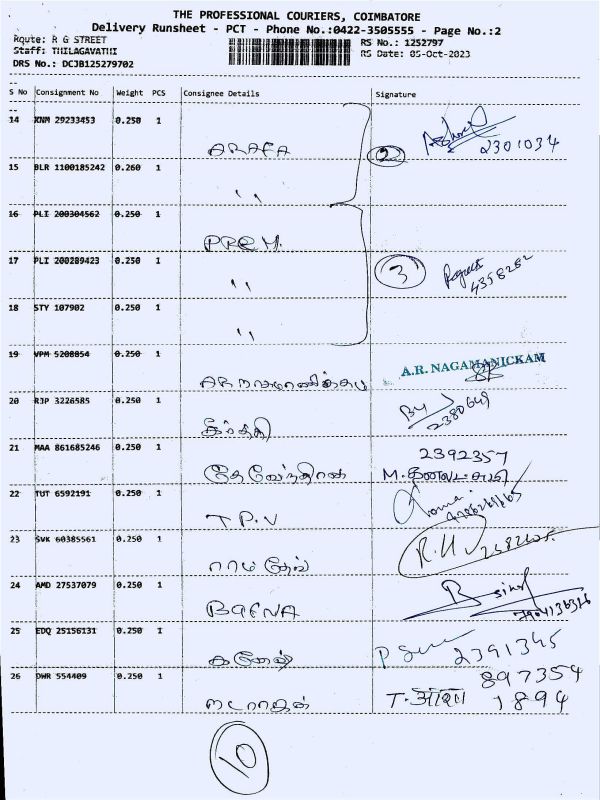 THE PROFESSIONAL COURIERS, COIMBATORE
Delivery Runsheet - PCT - Phone No.:0422-3505555 - Page No.:2
Route: R G STREET
RS No.: 1252797
Staff: THILAGAVATHI
RS Date: 05-Oct-2023
DRS No.: DCJB125279702
S No Consignment No Weight PCS Consignee Details Signature
14 KNM 29233453 0.250 1
ARAFA
2
2301034
15 BLR 1100185242 0.260 1
"
16 PLI 200304562 0.250 1
PREM.
17 PLI 200289423 0.250 1
"
3
4358282
18 STY 107902 0.250 1
"
19 VPM 5208854 0.250 1
A.R. NAGAMANICKAM
20 RJP 3226585 0.250 1
2380649
21 MAA 861685246 0.250 1
2392357
தேவேந்திரன்
M.
22 TUT 6592191 0.250 1
T.P.V
23 SVK 60385561 0.250 1
ராமதேவ்
R.U
24 AMD 27537079 0.250 1
BAFNA
B sing
7904136316
25 EDQ 25156131 0.250 1
கணேஷ்
P
2391345
26 DWR 554409 0.250 1
897354
T. आशा 1894
10